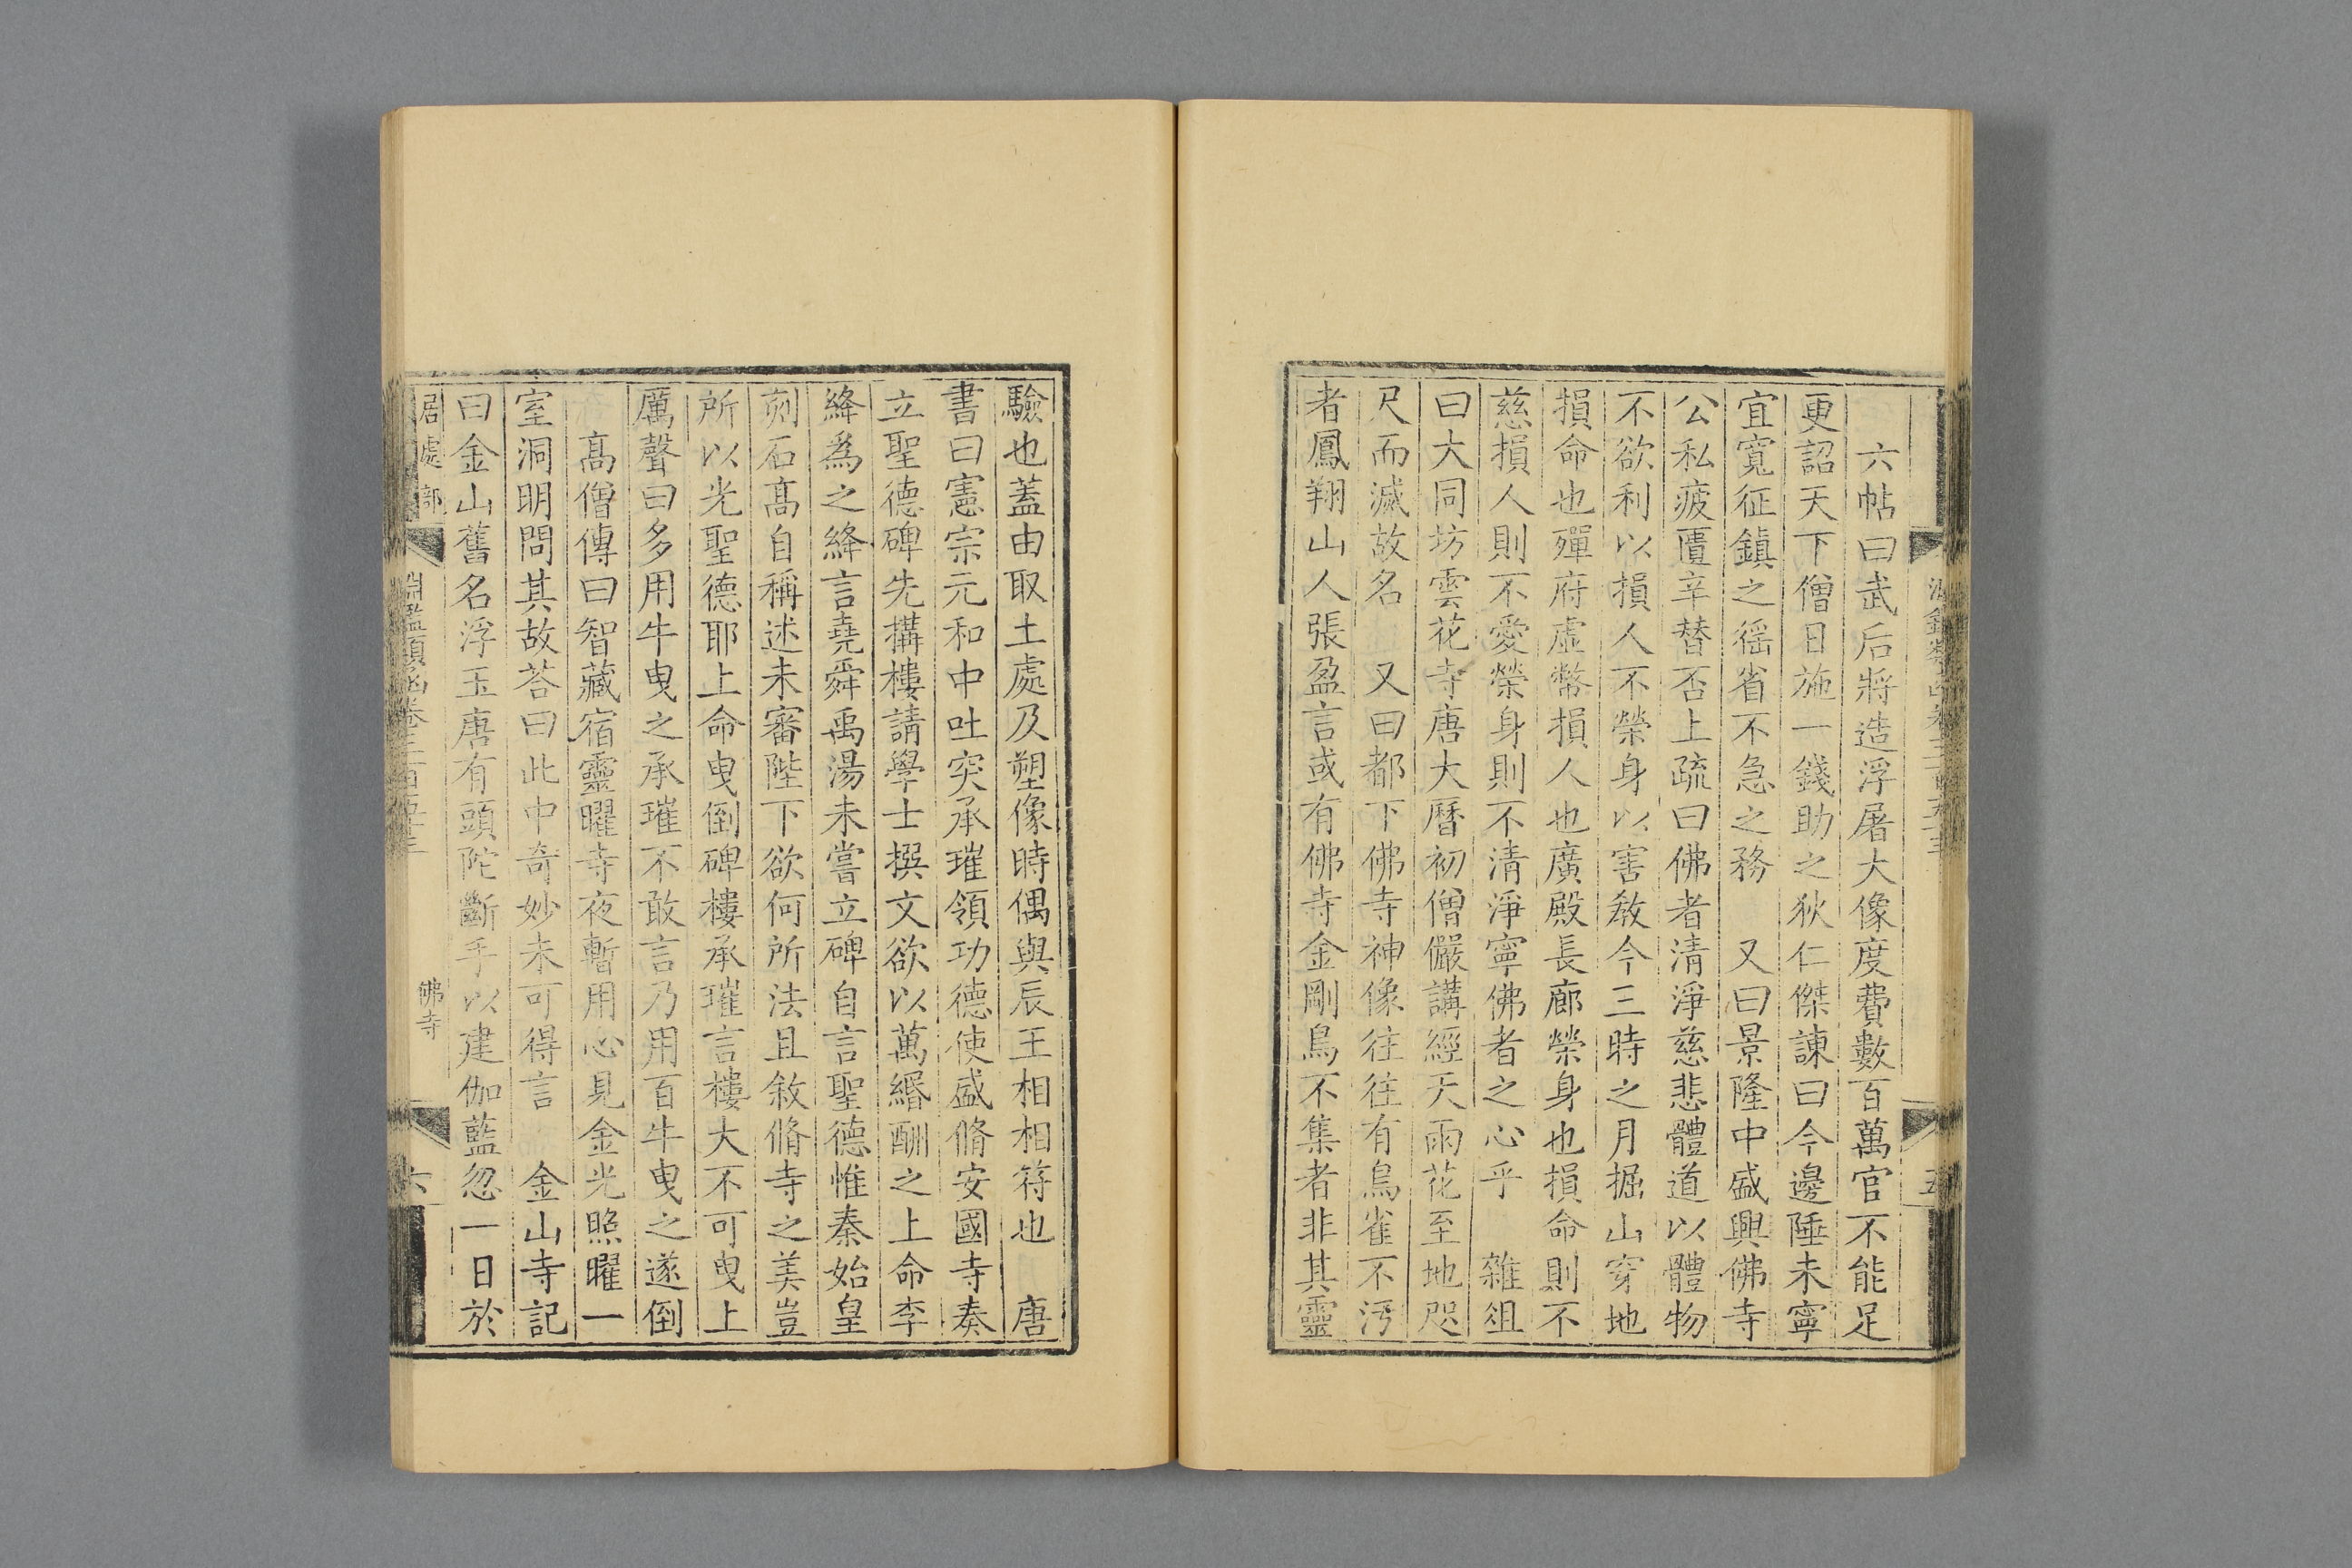 六帖曰武后將造浮屠大像度費數百萬官不能足
更詔天下僧日施一錢助之狄仁傑諫曰今邊陲未寧
宜寬征鎮之徭省不急之務　又曰景隆中盛興佛寺
公私疲匱辛替否上疏曰佛者清淨慈悲體道以體物
不欲利以損人不榮身以害教今三時之月掘山穿地
損命也殫府虛帑損人也廣殿長廊榮身也損命則不
慈損人則不愛榮身則不清淨寧佛者之心乎　雜俎
曰大同坊雲花寺唐大曆初僧儼講經天雨花至地咫
尺而滅故名　又曰都下佛寺神像往往有鳥雀不汚
者鳳翔山人張盈言或有佛寺金剛鳥不集者非其靈
驗也蓋由取土處及塑像時偶與辰王相相符也　唐
書曰憲宗元和中吐突承璀領功德使盛脩安國寺奏
立聖德碑先搆樓請學士撰文欲以萬緡酬之上命李
絳爲之絳言堯舜禹湯未嘗立碑自言聖德惟秦始皇
刻石髙自稱述未審陛下欲何所法且敘脩寺之美豈
所以光聖德耶上命曳倒碑樓承璀言樓大不可曳上
厲聲曰多用牛曳之承璀不敢言乃用百牛曳之遂倒
髙僧傳曰智藏宿靈曜寺夜暫用心見金光照曜一
室洞明問其故荅曰此中奇妙未可得言　金山寺記
曰金山舊名浮玉唐有頭陀斷手以建伽藍忽一日於
居處部
佛寺
六